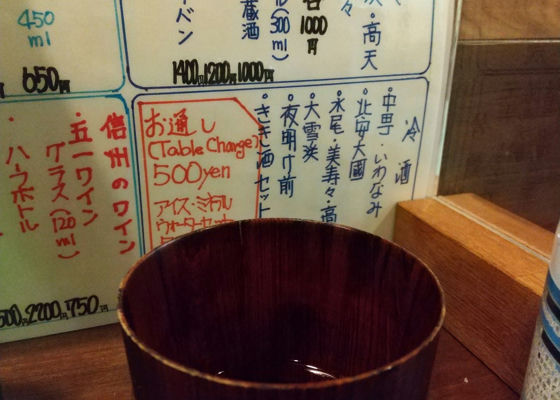 ・高天
々
1000円
蔵酒
1400円, 1200円, 1000円
450
ml
650円
冷酒
・いわなみ
・北安大國
・水尾・美寿々・高
・大雪渓
・夜明け前
・きき酒セット
お通し
(Table Change)
500yen
アイス・ミネラル
ウォーターセット
信州のワイン
・五一ワイン
グラス(120ml)
・ハーフボトル
2200円, 750円